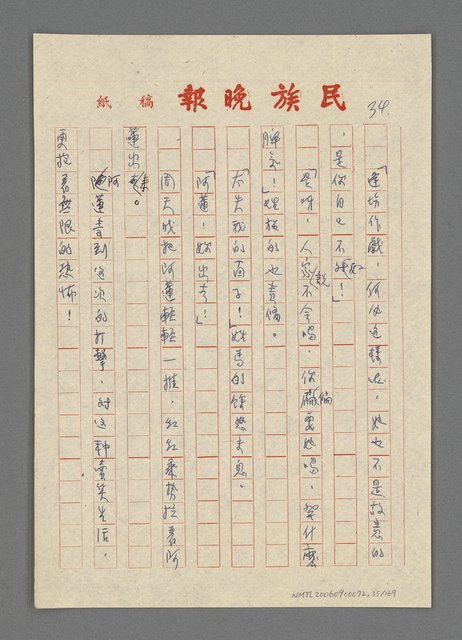 民族晚報 稿紙
34.
「逢場作戲,何必這樣呢,她也不是故意的
,是你自己不好!」
「是呀,人家說不會喝,你偏要她喝,發什麼
脾氣!」姓楊的也責備。
「太失我的面子!」姓馬的餘怒未息。
「阿蓮!妳出去!」
周天成把阿蓮輕輕一推,紅紅乘勢拉著阿
蓮出去。
阿蓮受到這次的打擊,對這種賣笑生活,
更抱著無限的恐怖!
NMTL20060900072.35/169